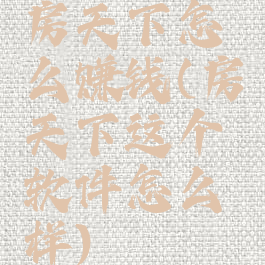 房天下怎
么赚钱(房
天下这个
软件怎么
样)